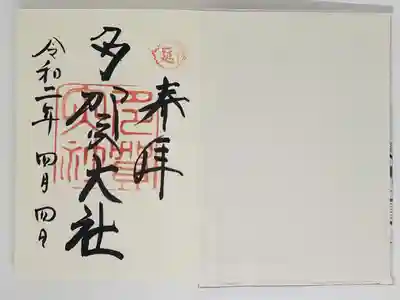 延
奉拝
多賀大社
令和二年 四月 四日